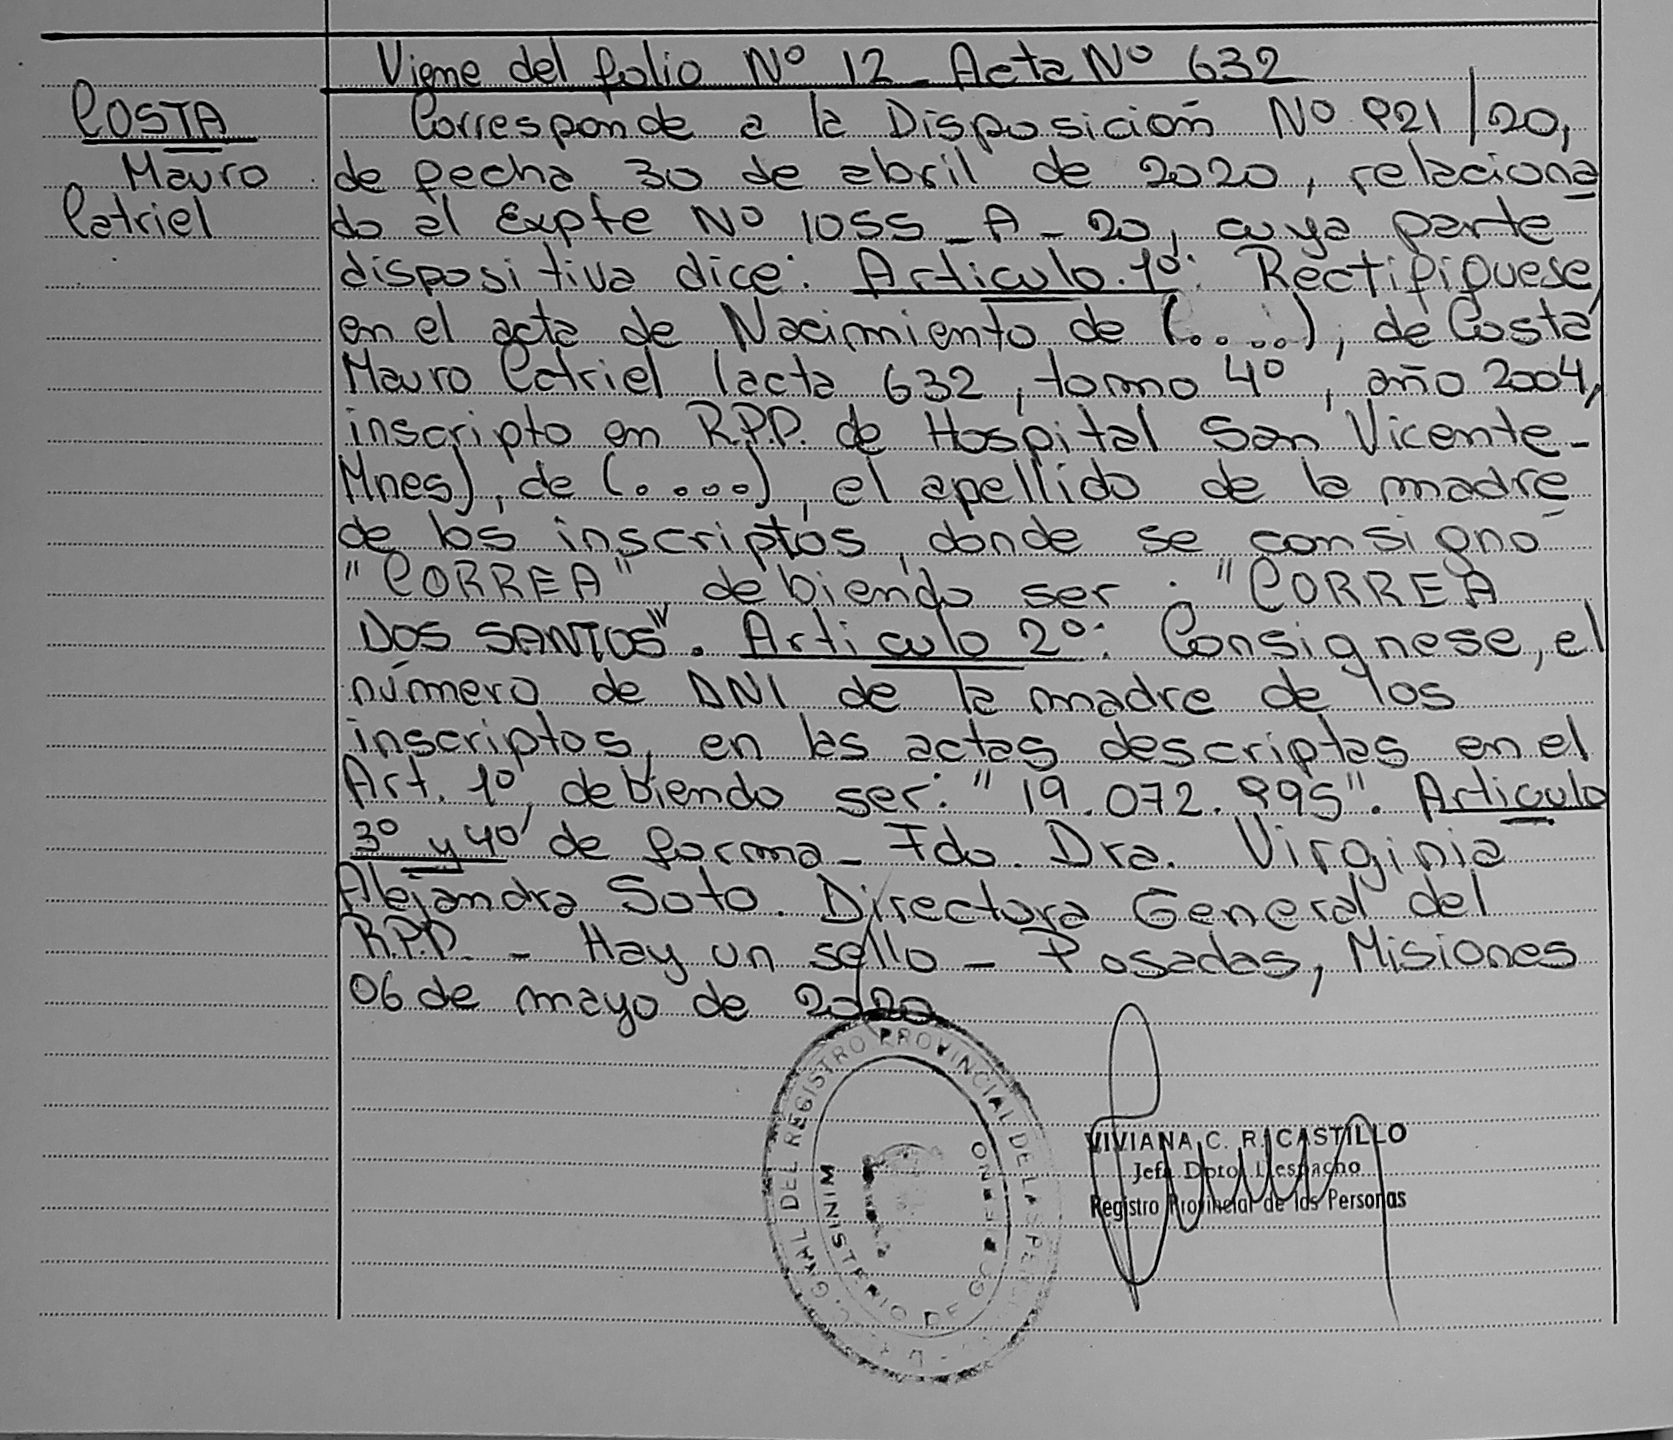 Viene del folio Nº 12_ Acta Nº 632
COSTA
Mauro
Catriel
Corresponde a la Disposición Nº 921/20,
de fecha 30 de abril de 2020, relaciona
do al Expte Nº 1055_A_20, cuya parte
dispositiva dice: Artículo 1º: Rectifíquese
en el acta de Nacimiento de (....), de Costa
Mauro Catriel (acta 632, tomo 4º, año 2004,
inscripto en R.P.P. de Hospital San Vicente-
Mnes), de (....), el apellido de la madre
de los inscriptos, donde se consignó
"CORREA" debiendo ser: "CORREA
DOS SANTOS". Artículo 2º: Consignese, el
número de DNI de la madre de los
inscriptos, en las actas descriptas en el
Art. 1º, debiendo ser: "19.072.995". Artículo
3º y 4º de forma_ Fdo. Dra. Virginia
Alejandra Soto. Directora General del
R.P.P. - Hay un sello - Posadas, Misiones
06 de mayo de 2020
GRAL DEL REGISTRO PROVINCIAL DE LAS
MINISTERIO DE
VIVIANA C. R. CASTILLO
Jefe Dpto. Despacho
Registro Provincial de las Personas